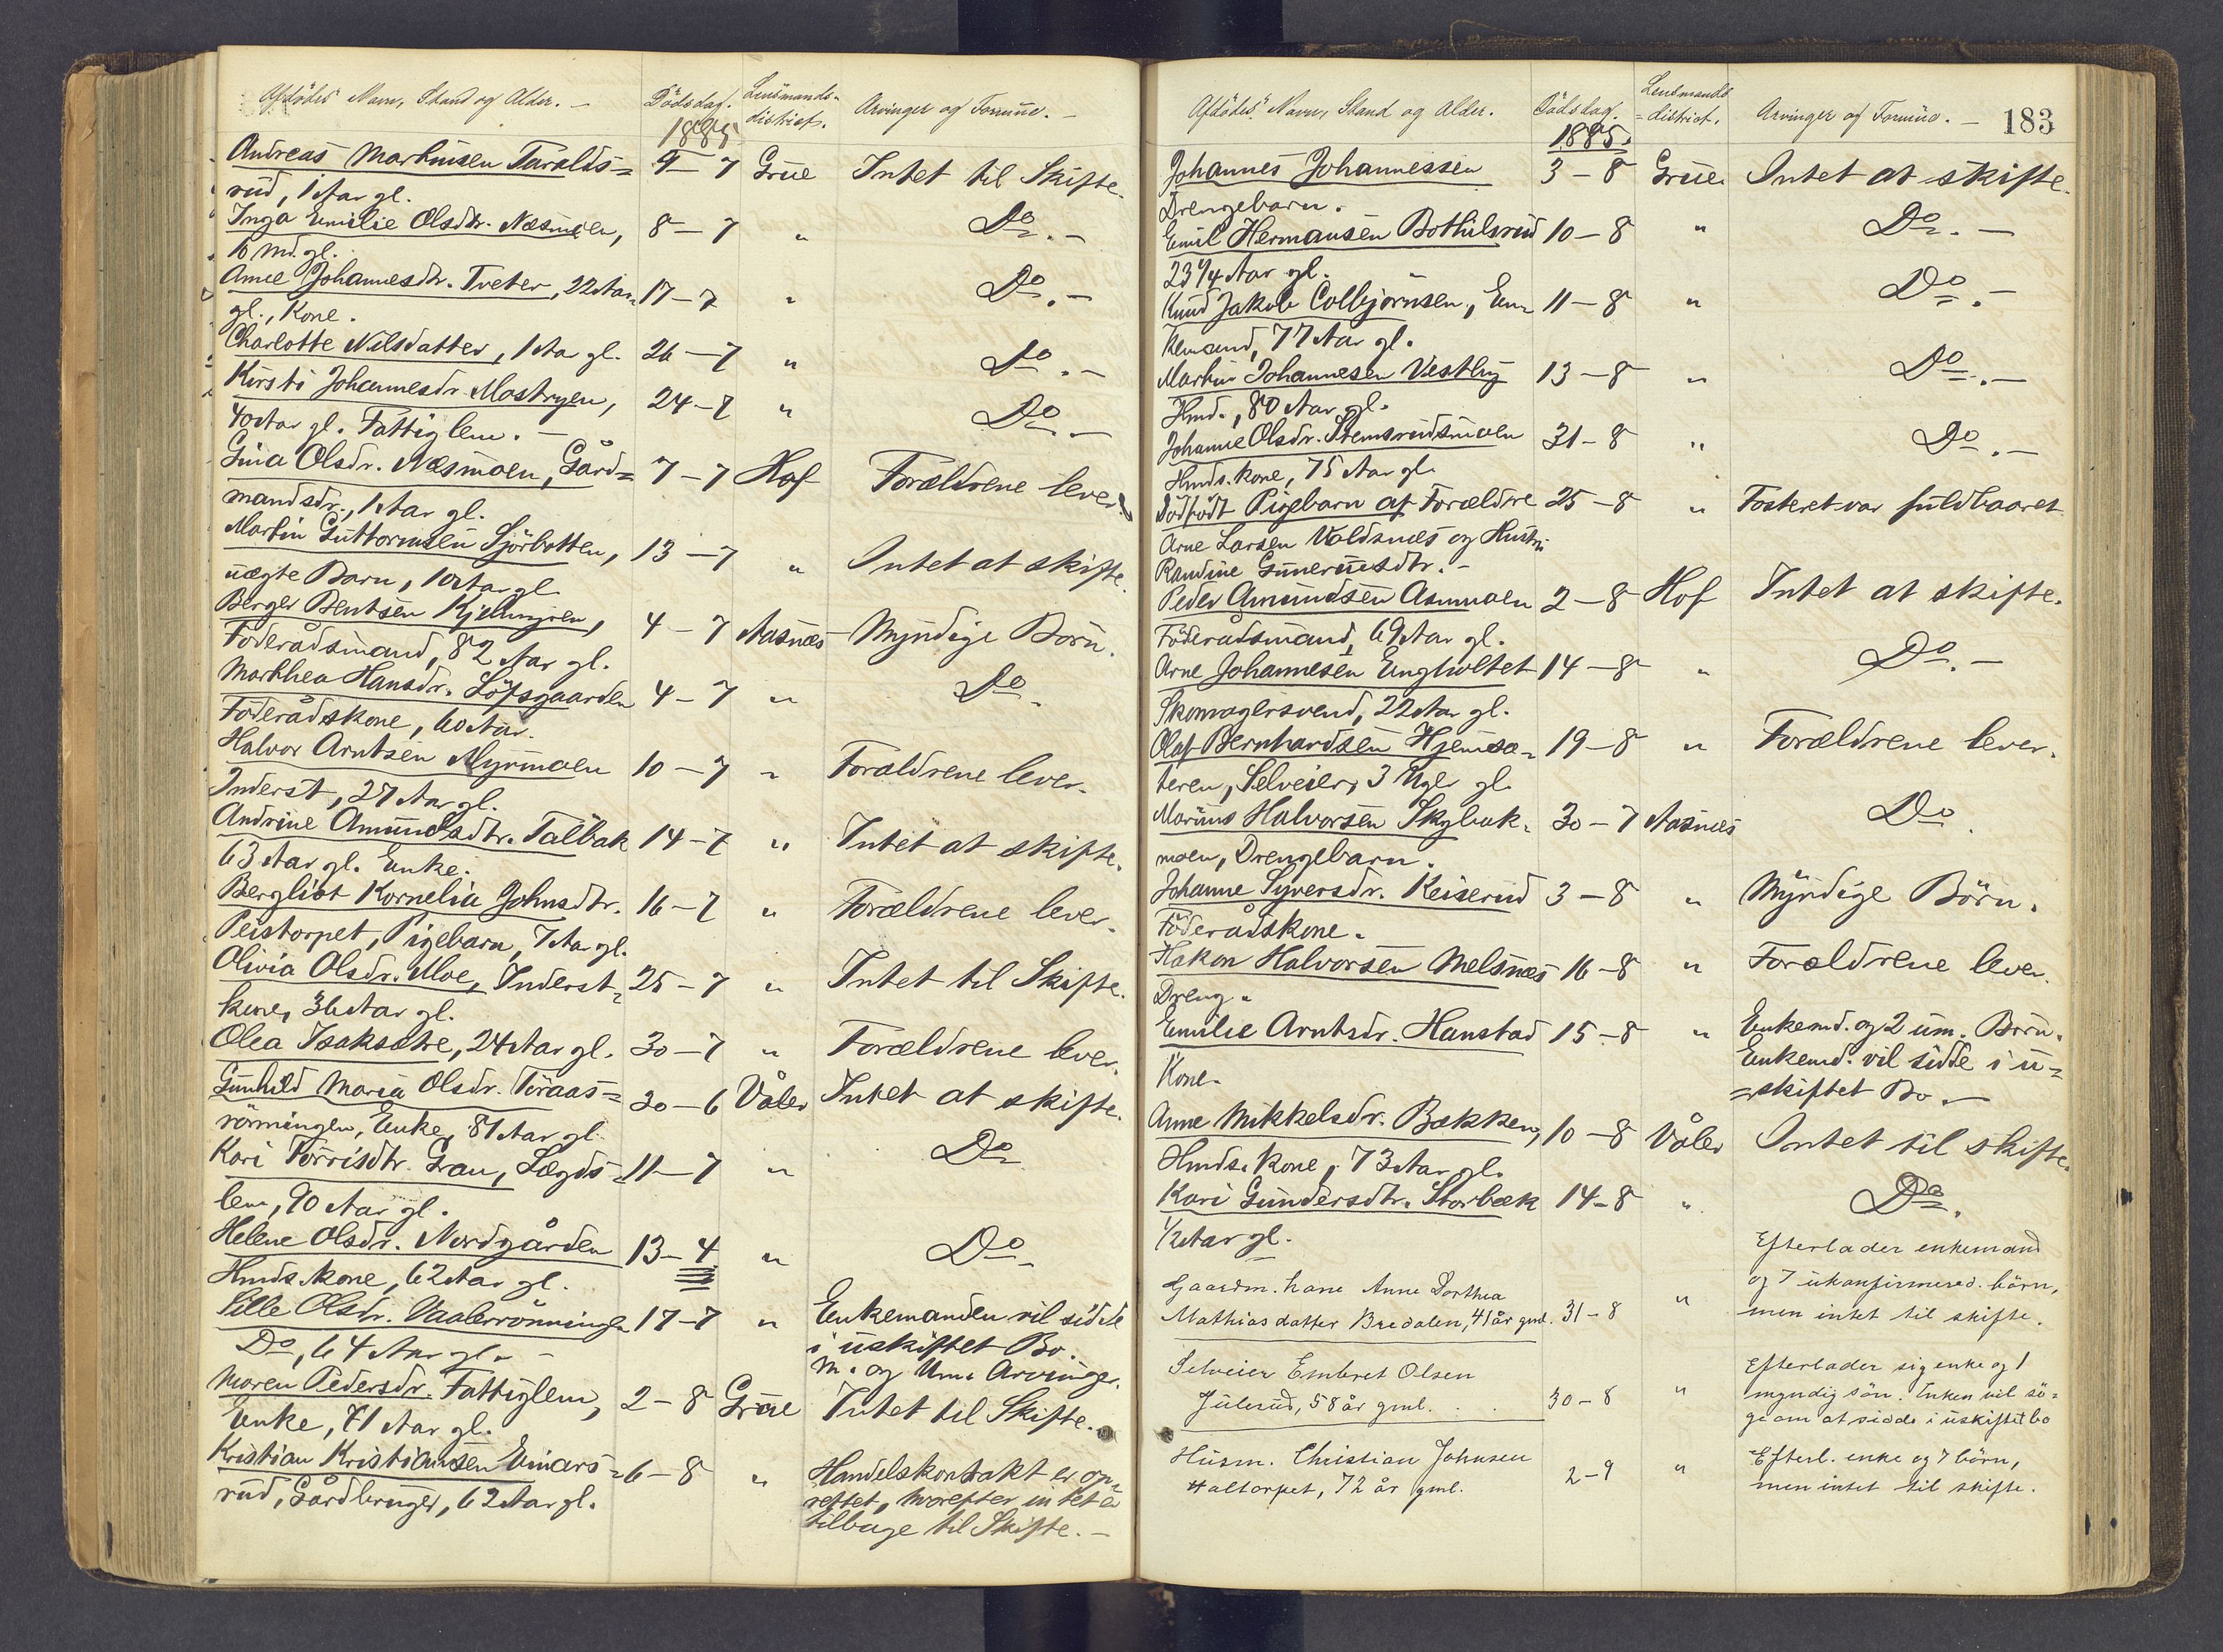 Afdödes Navn, Stand og Alder. —
Dödsdag.
1885
Lensmands-
district.
Arvinger og Formue. —
Andreas Martinsen Taralds= 9 — 7 Grue Intet til Skifte.
rud, 1 Aar gl.
Inga Emilie Olsdtr. Næsmoen, 8 — 7 " Do. —
Md. gl.
Anne Johannesdtr. Tveter, 22 Aar 17 — 7 " Do. —
gl., Kone.
Charlotte Nilsdatter, 1 Aar gl. 26 — 7 " Do. —
Kirsti Johannesdr. Mostryen, 24 — 7 " Do. —
40 Aar gl. Fattiglem. —
Gina Olsdr. Næsmoen, Gård= 7 — 7 Hof Forældrene lever.
mandsdr., 1 Aar gl.
Martin Guttormsen Sjörbotten, 13 — 7 " Intet at skifte.
uægte Barn, 10 Aar gl
Berger Bentsen Kjelmyren, 4 — 7 Aasnæs Myndige Börn.
Föderådsmand, 82 Aar gl.
Marthea Hansdr. Löfsgaarden 4 — 7 " Do.
Föderådskone, 60 Aar.
Halvor Arntsen Myrmoen 10 — 7 " Forældrene lever.
Inderst, 27 Aar gl.
Andrine Amundsdtr. Talbak 14 — 7 " Intet at skifte.
63 Aar gl. Enke.
Bergliot Kornelia Johnsdtr. 16 — 7 " Forældrene lever.
Peistorpet, Pigebarn, 7 Aar gl.
Olivia Olsdr. Moe, Inderst= 25 — 7 " Intet til Skifte.
kone, 36 Aar gl.
Olea Isaksætre, 24 Aar gl. 30 — 7 " Forældrene lever.
Gunhild Maria Olsdr. Toraas= 30 — 6 Våler Intet at skifte.
rönningen, Enke, 81 Aar gl.
Kari Torrisdtr. Grau, Lægds= 11 — 7 " Do
lem, 90 Aar gl.
Helene Olsdr. Nordgården 13 — 4 " Do —
Hmds. kone, 62 Aar gl.
Sille Olsdr. Vaalerrönningen 17 — 7 " Enkemanden vil sidde
Do, 64 Aar gl. — i uskiftet Bo.
M. og Um. Arvinger.
Maren Pedersdr. Fattiglem, 2 — 8 Grue Intet til Skifte.
Enke, 71 Aar gl.
Kristian Kristiansen Einars= 6 — 8 " Handelskontrakt er op=
rud, Gårdbruger, 62 Aar gl. rettet, hvorefter intet er
tilbage til Skifte. —
Afdödes Navn, Stand og Alder.
Dödsdag.
1885.
Lensmands
=district.
Arvinger og Formue. — 183
Johannes Johannessen 3 — 8 Grue. Intet at skifte.
Drengebarn.
Emil Hermansen Bothilsrud 10 — 8 " Do. —
23 1/4 Aar gl.
Knud Jakob Colbjörnsen, En= 11 — 8 " Do. —
kemand, 77 Aar gl.
Martin Johannesen Vestby 13 — 8 " Do. —
Hmd., 80 Aar gl.
Johanne Olsdr. Stemsrudsmoen 31 — 8 " Do. —
Hmds. kone, 75 Aar gl.
Dödfödt Pigebarn af Forældre 25 — 8 " Fosteret var fuldbaaret
Arne Larsen Voldsnæs og Hustru
Randine Gunerusdtr. —
Peder Amundsen Asmoen 2 — 8 Hof Intet at skifte.
Föderådsmand, 69 Aar gl.
Arne Johannesen Engholtet 14 — 8 " Do. —
Skomagersvend, 22 Aar gl.
Olaf Bernhardsen Hjemsæ= 19 — 8 " Forældrene lever.
teren, Selveier, 3 Uger gl.
Marius Halvorsen Skybak= 30 — 7 Aasnæs Do.
moen, Drengebarn.
Johanne Syversdr. Keiserud 3 — 8 " Myndige Börn.
Föderådskone.
Hakon Halvorsen Melsnæs 16 — 8 " Forældrene lever.
Dreng.
Emilie Arntsdr. Hanstad 15 — 8 " Enkemd. og 2 um. Börn.
Kone. Enkemd. vil sidde i u=
=skiftet Bo. —
Anne Mikkelsdr. Bækken, 10 — 8 Våler Intet til skifte.
Hmds. kone, 73 Aar gl.
Kari Gundersdtr. Storbæk 14 — 8 " Do.
1/2 Aar gl.
Efterlader enkemand
Gaardm. kone Anne Dorthea og 7 ukonfirmered. börn,
Mathiasdatter Bredalen, 41 år gml. 31 — 8 " men intet til skifte.
Selveier Embret Olsen Efterlader sig enke og 1
Julsrud, 58 år gml. . . 30 — 8 " myndig sön. Enken vil sö=
ge om at sidde i uskiftet bo
Husm. Christian Johnsen Efterl. enke og 7 börn,
Haltorpet, 72 år gml. 2 — 9 " men intet til skifte.